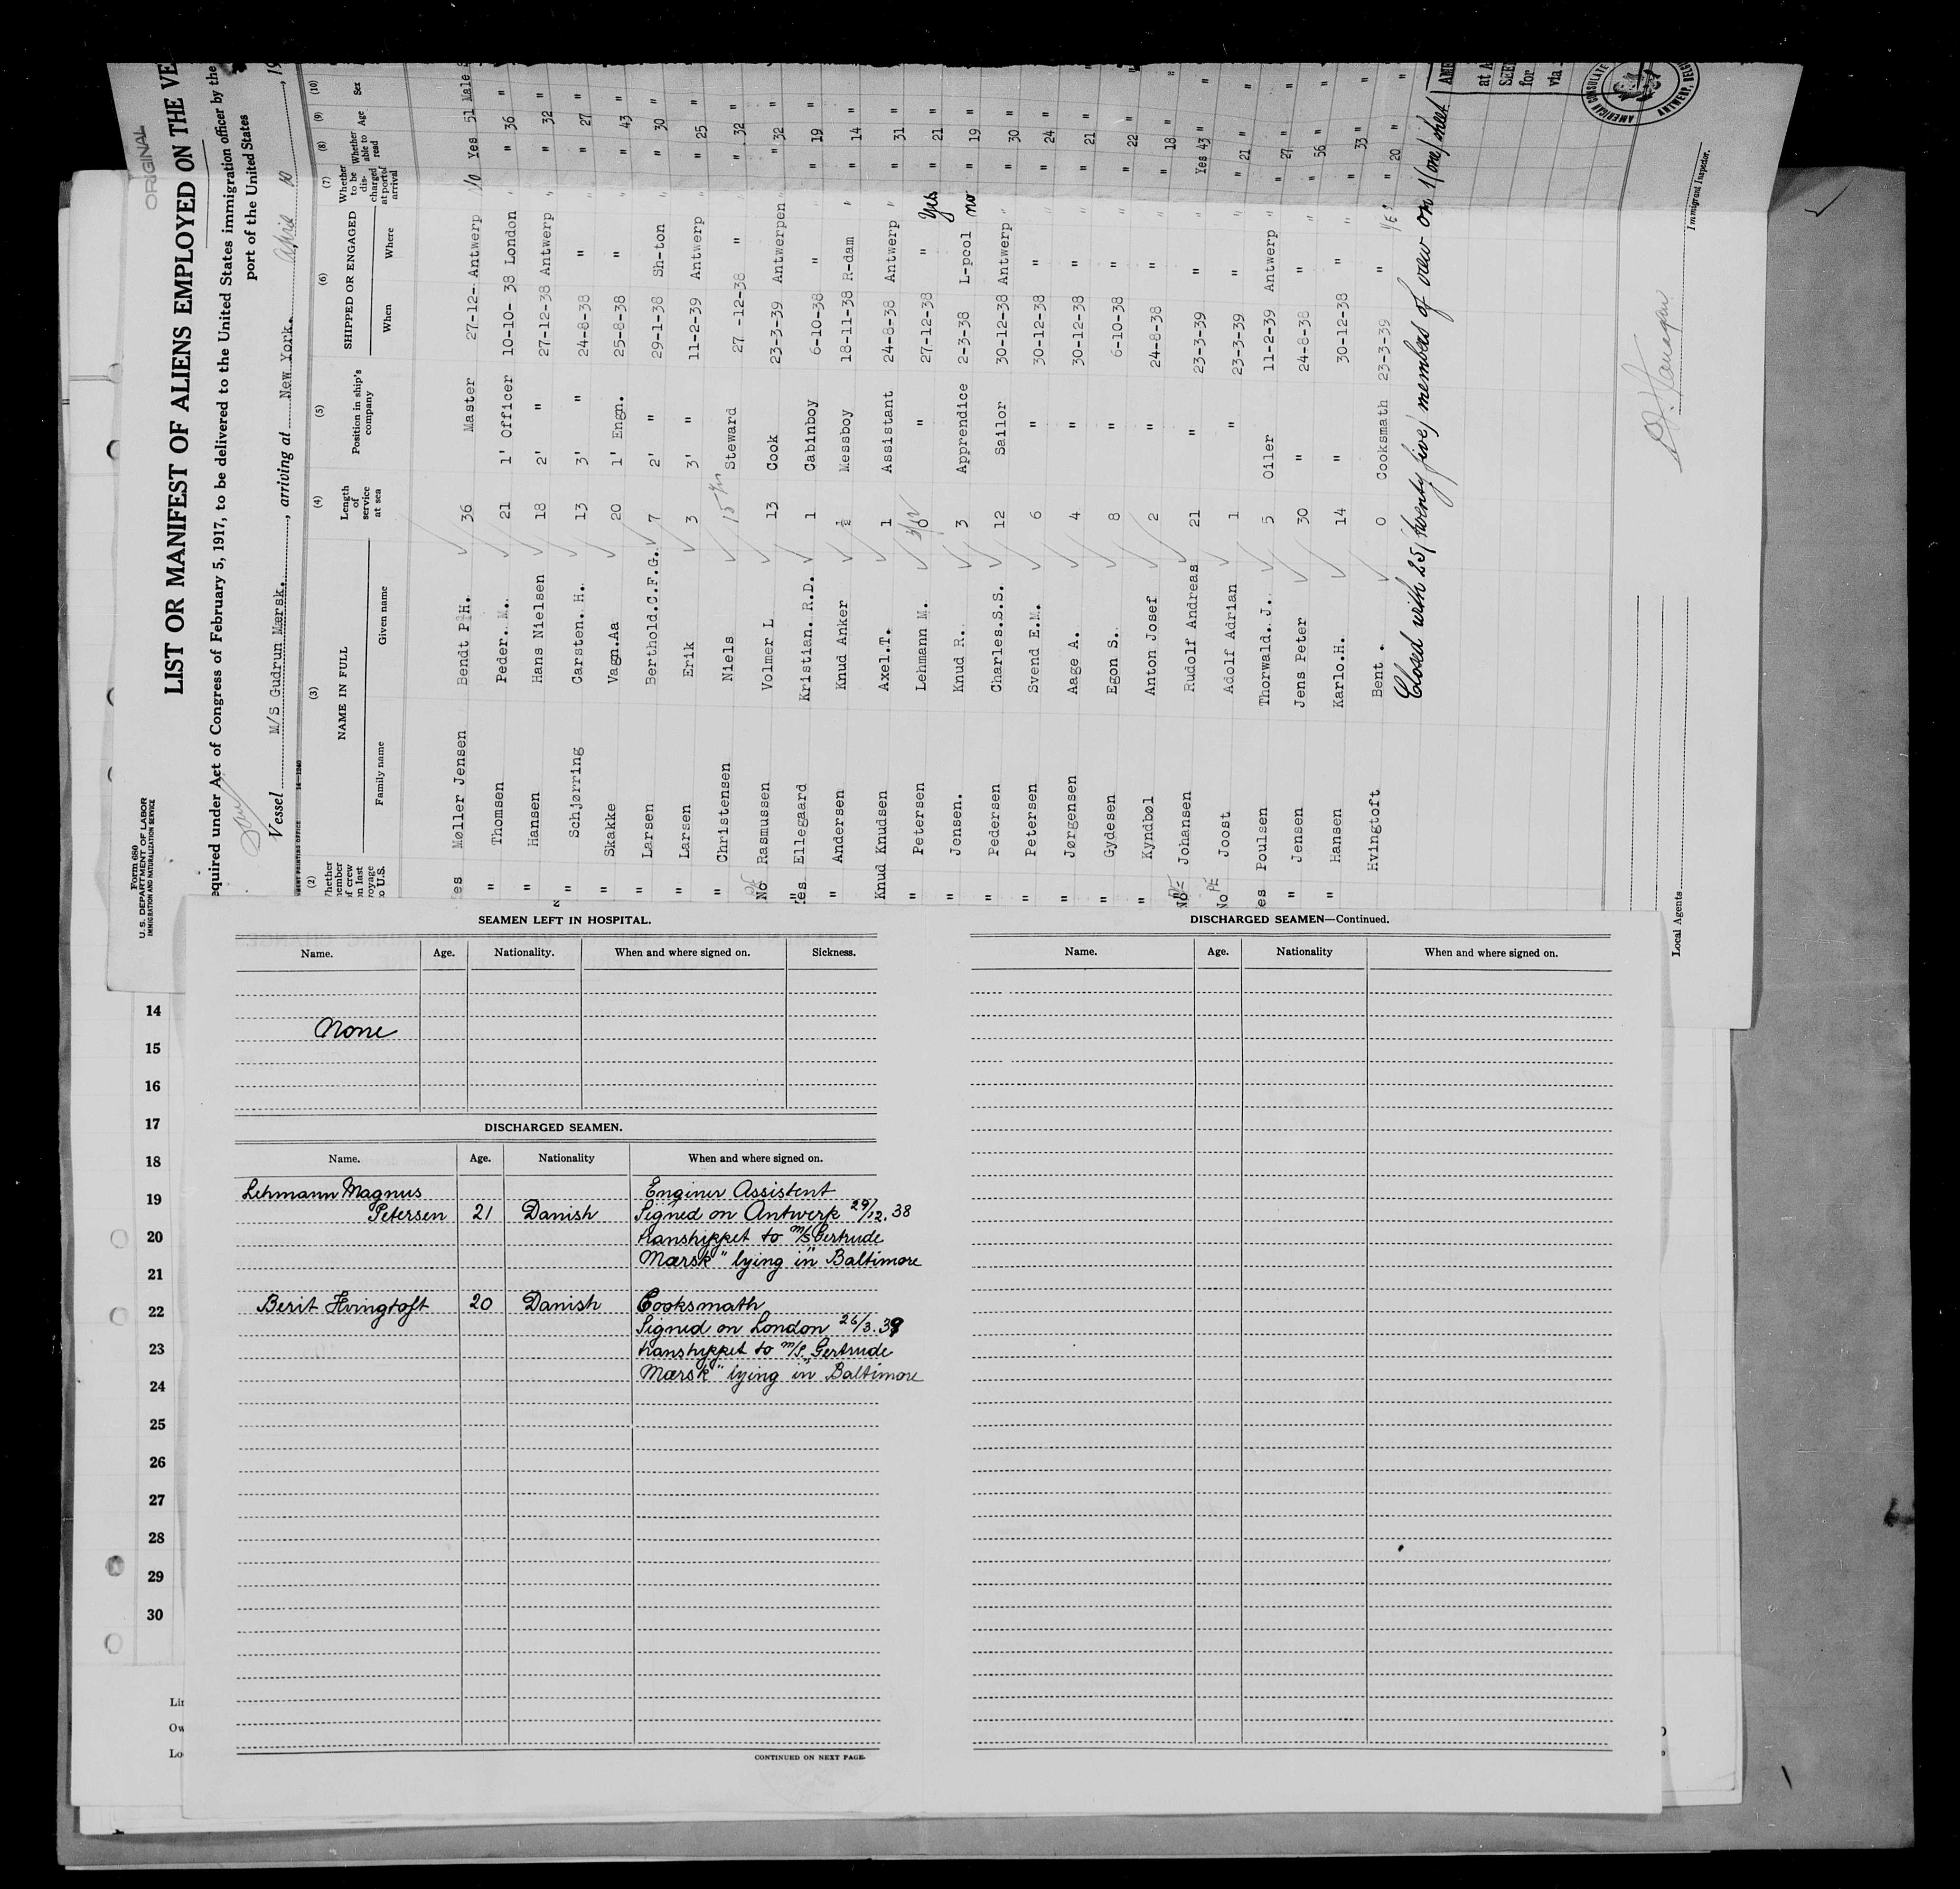 ORIGINAL
Form 680
U.S. DEPARTMENT OF LABOR
IMMIGRATION AND NATURALIZATION SERVICE
LIST OR MANIFEST OF ALIENS EMPLOYED ON THE VE
equired under Act of Congress of February 5, 1917, to be delivered to the United States immigration officer by the
port of the United States
Vessel M/S Gudrun Mærsk. , arriving at New York. April 10 , 19
(2) (3) (4) (5) (6) (7) (8) (9) (10)
Whether member of crew on last voyage to U.S. NAME IN FULL Family name Given name Length of service at sea Position in ship's company SHIPPED OR ENGAGED When Where Whether to be discharged at port of arrival Whether able to read Age Sex
es Møller Jensen Bendt P H. 36 Master 27-12- Antwerp No Yes 51 Male
" Thomsen Peder. M. 21 1' Officer 10-10- 38 London " " 36 "
" Hansen Hans Nielsen 18 2' " 27-12-38 Antwerp " " 32 "
" Schjørring Carsten. H. 13 3' " 24-8-38 " " " 27 "
" Skakke Vagn.Aa 20 1' Engn. 25-8-38 " " " 43 "
" Larsen Berthold.C.F.G. 7 2' " 29-1-38 Sh-ton " " 30 "
" Larsen Erik 3 3' " 11-2-39 Antwerp " " 25 "
" Christensen Niels 15 Steward 27 -12-38 " " 32 "
No Rasmussen Volmer L 13 Cook 23-3-39 Antwerpen " " 32 "
Yes Ellegaard Kristian. R.D. 1 Cabinboy 6-10-38 " " 19 "
" Andersen Knud Anker ½ Messboy 18-11-38 R-dam " " 14 "
" Knud Knudsen Axel.T. 1 Assistant 24-8-38 Antwerp " " 31 "
" Petersen Lehmann M. 0 " 27-12-38 " Yes " 21 "
" Jensen. Knud R. 3 Apprendice 2-3-38 L-pool no " 19 "
" Pedersen Charles.S.S. 12 Sailor 30-12-38 Antwerp " " 30 "
" Petersen Svend E.M. 6 " 30-12-38 " " " 24 "
" Jørgensen Aage A. 4 " 30-12-38 " " " 21 "
" Gydesen Egon S. 8 " 6-10-38 " " " 22 "
" Kyndbøl Anton Josef 2 " 24-8-38 " " " 18 "
No Johansen Rudolf Andreas 21 " 23-3-39 " " Yes 43 "
No Joost Adolf Adrian 1 " 23-3-39 " " " 21 "
es Poulsen Thorwald. J. 5 Oiler 11-2-39 Antwerp " " 27 "
" Jensen Jens Peter 30 " 24-8-38 " " " 56 "
" Hansen Karlo.H. 14 " 30-12-38 " " " 33 "
Hvingtoft Bent . 0 Cooksmath 23-3-39 " Yes " 20 "
Closed with 25/twenty five/ members of crew on 1/one/ sheet
AMERICAN CONSULATE
ANTWERP, BELGI
at A
SEEN
for
via
Immigrant Inspector.
Local Agents
SEAMEN LEFT IN HOSPITAL.
Name. Age. Nationality. When and where signed on. Sickness.
None
DISCHARGED SEAMEN.
Name. Age. Nationality When and where signed on.
Lehmann Magnus Enginer Assistent
Petersen 21 Danish Signed on Antwerp 29/12. 38
transhippet to m/s Gertrude
Mærsk" lying in Baltimore
Berit Hvingtoft 20 Danish Cooksmath
Signed on London 26/3.39
transhippet to m/s „Gertrude
Mærsk" lying in Baltimore
CONTINUED ON NEXT PAGE.
DISCHARGED SEAMEN—Continued.
Name. Age. Nationality When and where signed on.
14
15
16
17
18
19
20
21
22
23
24
25
26
27
28
29
30
Lin
Ow
Lo